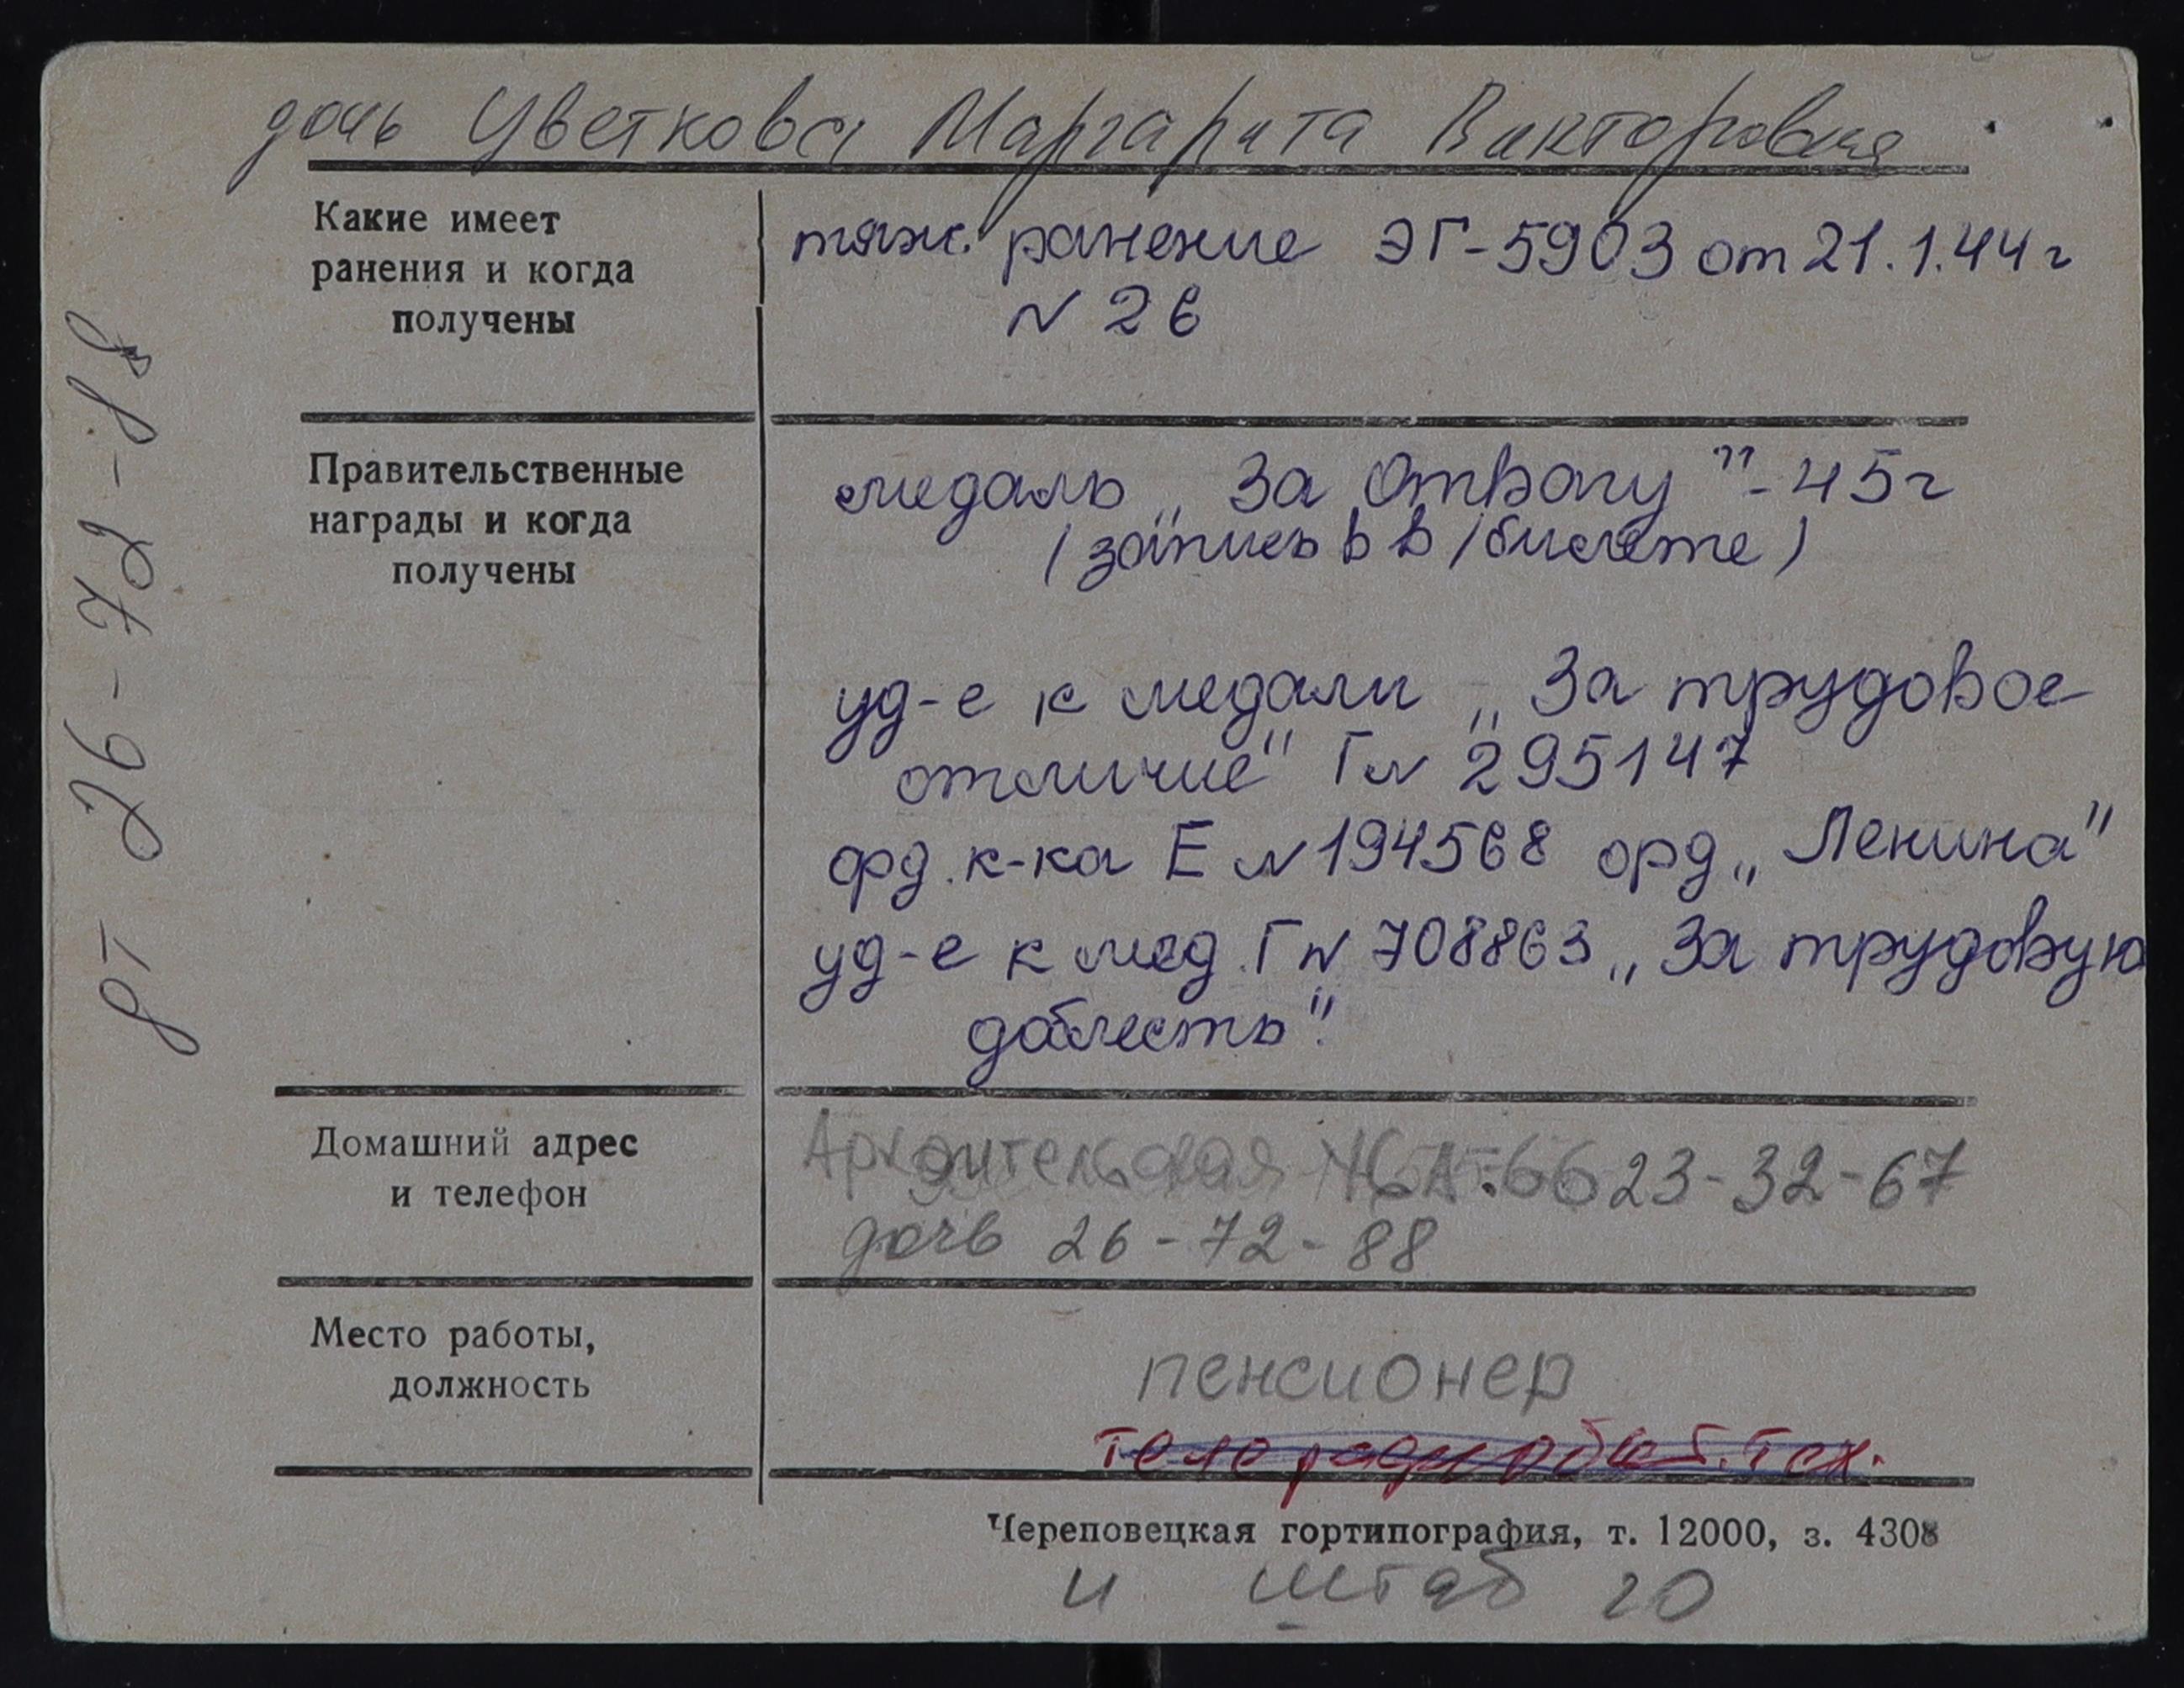 дочь Цветкова Маргарита Викторовна
Какие имеет
ранения и когда
получены
тяж. ранение ЭГ-5903 от 21.1.44 г
N 26
Правительственные
награды и когда
получены
медаль „За Отвагу" - 45 г
(запись в в/билете)
уд-е к медали „За трудовое
отличие" Г N 295147
орд. к-ка Е N 194568 орд „Ленина"
уд-е к мед. Г N 708863 „За трудовую
доблесть".
Домашний адрес
и телефон
23-32-67
дочь 26-72-88
Место работы,
должность
пенсионер
Череповецкая гортипография, т. 12000, з. 4308
и штаб го
дт 26-72-88